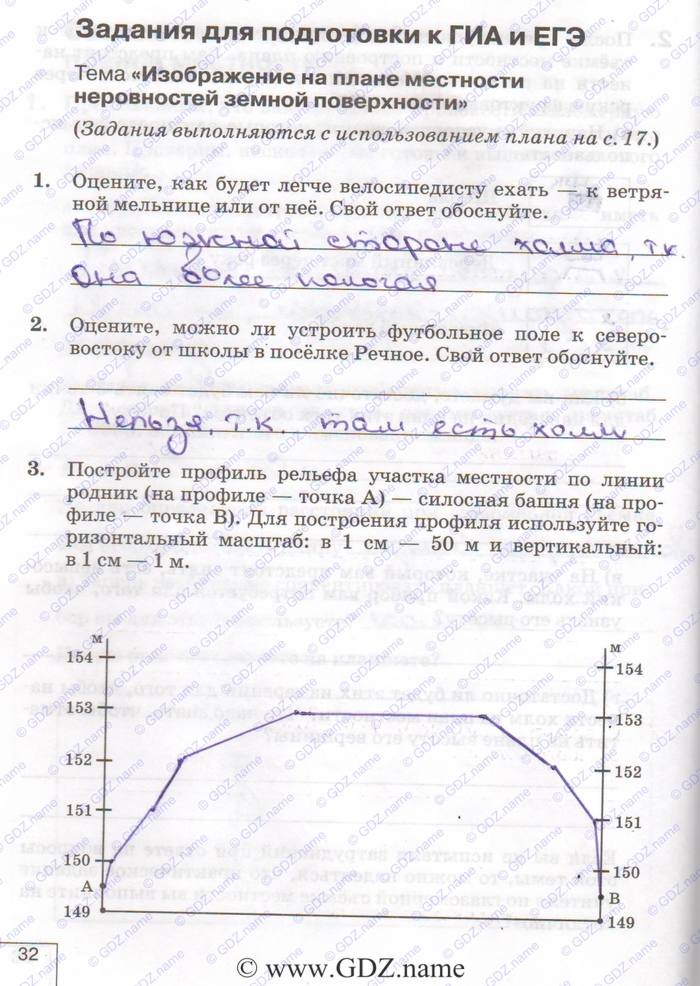 Задания для подготовки к ГИА и ЕГЭ
Тема «Изображение на плане местности
неровностей земной поверхности»
(Задания выполняются с использованием плана на с. 17.)
1. Оцените, как будет легче велосипедисту ехать — к ветря-
ной мельнице или от неё. Свой ответ обоснуйте.
По южной стороне холма, т.к.
Она более пологая
2. Оцените, можно ли устроить футбольное поле к северо-
востоку от школы в посёлке Речное. Свой ответ обоснуйте.
Нельзя, т.к. там есть холм
3. Постройте профиль рельефа участка местности по линии
родник (на профиле — точка А) — силосная башня (на про-
филе — точка В). Для построения профиля используйте го-
ризонтальный масштаб: в 1 см — 50 м и вертикальный:
в 1 см — 1 м.
м м
154 154
153 153
152 152
151 151
150 150
А В
149 149
32
© www.GDZ.name